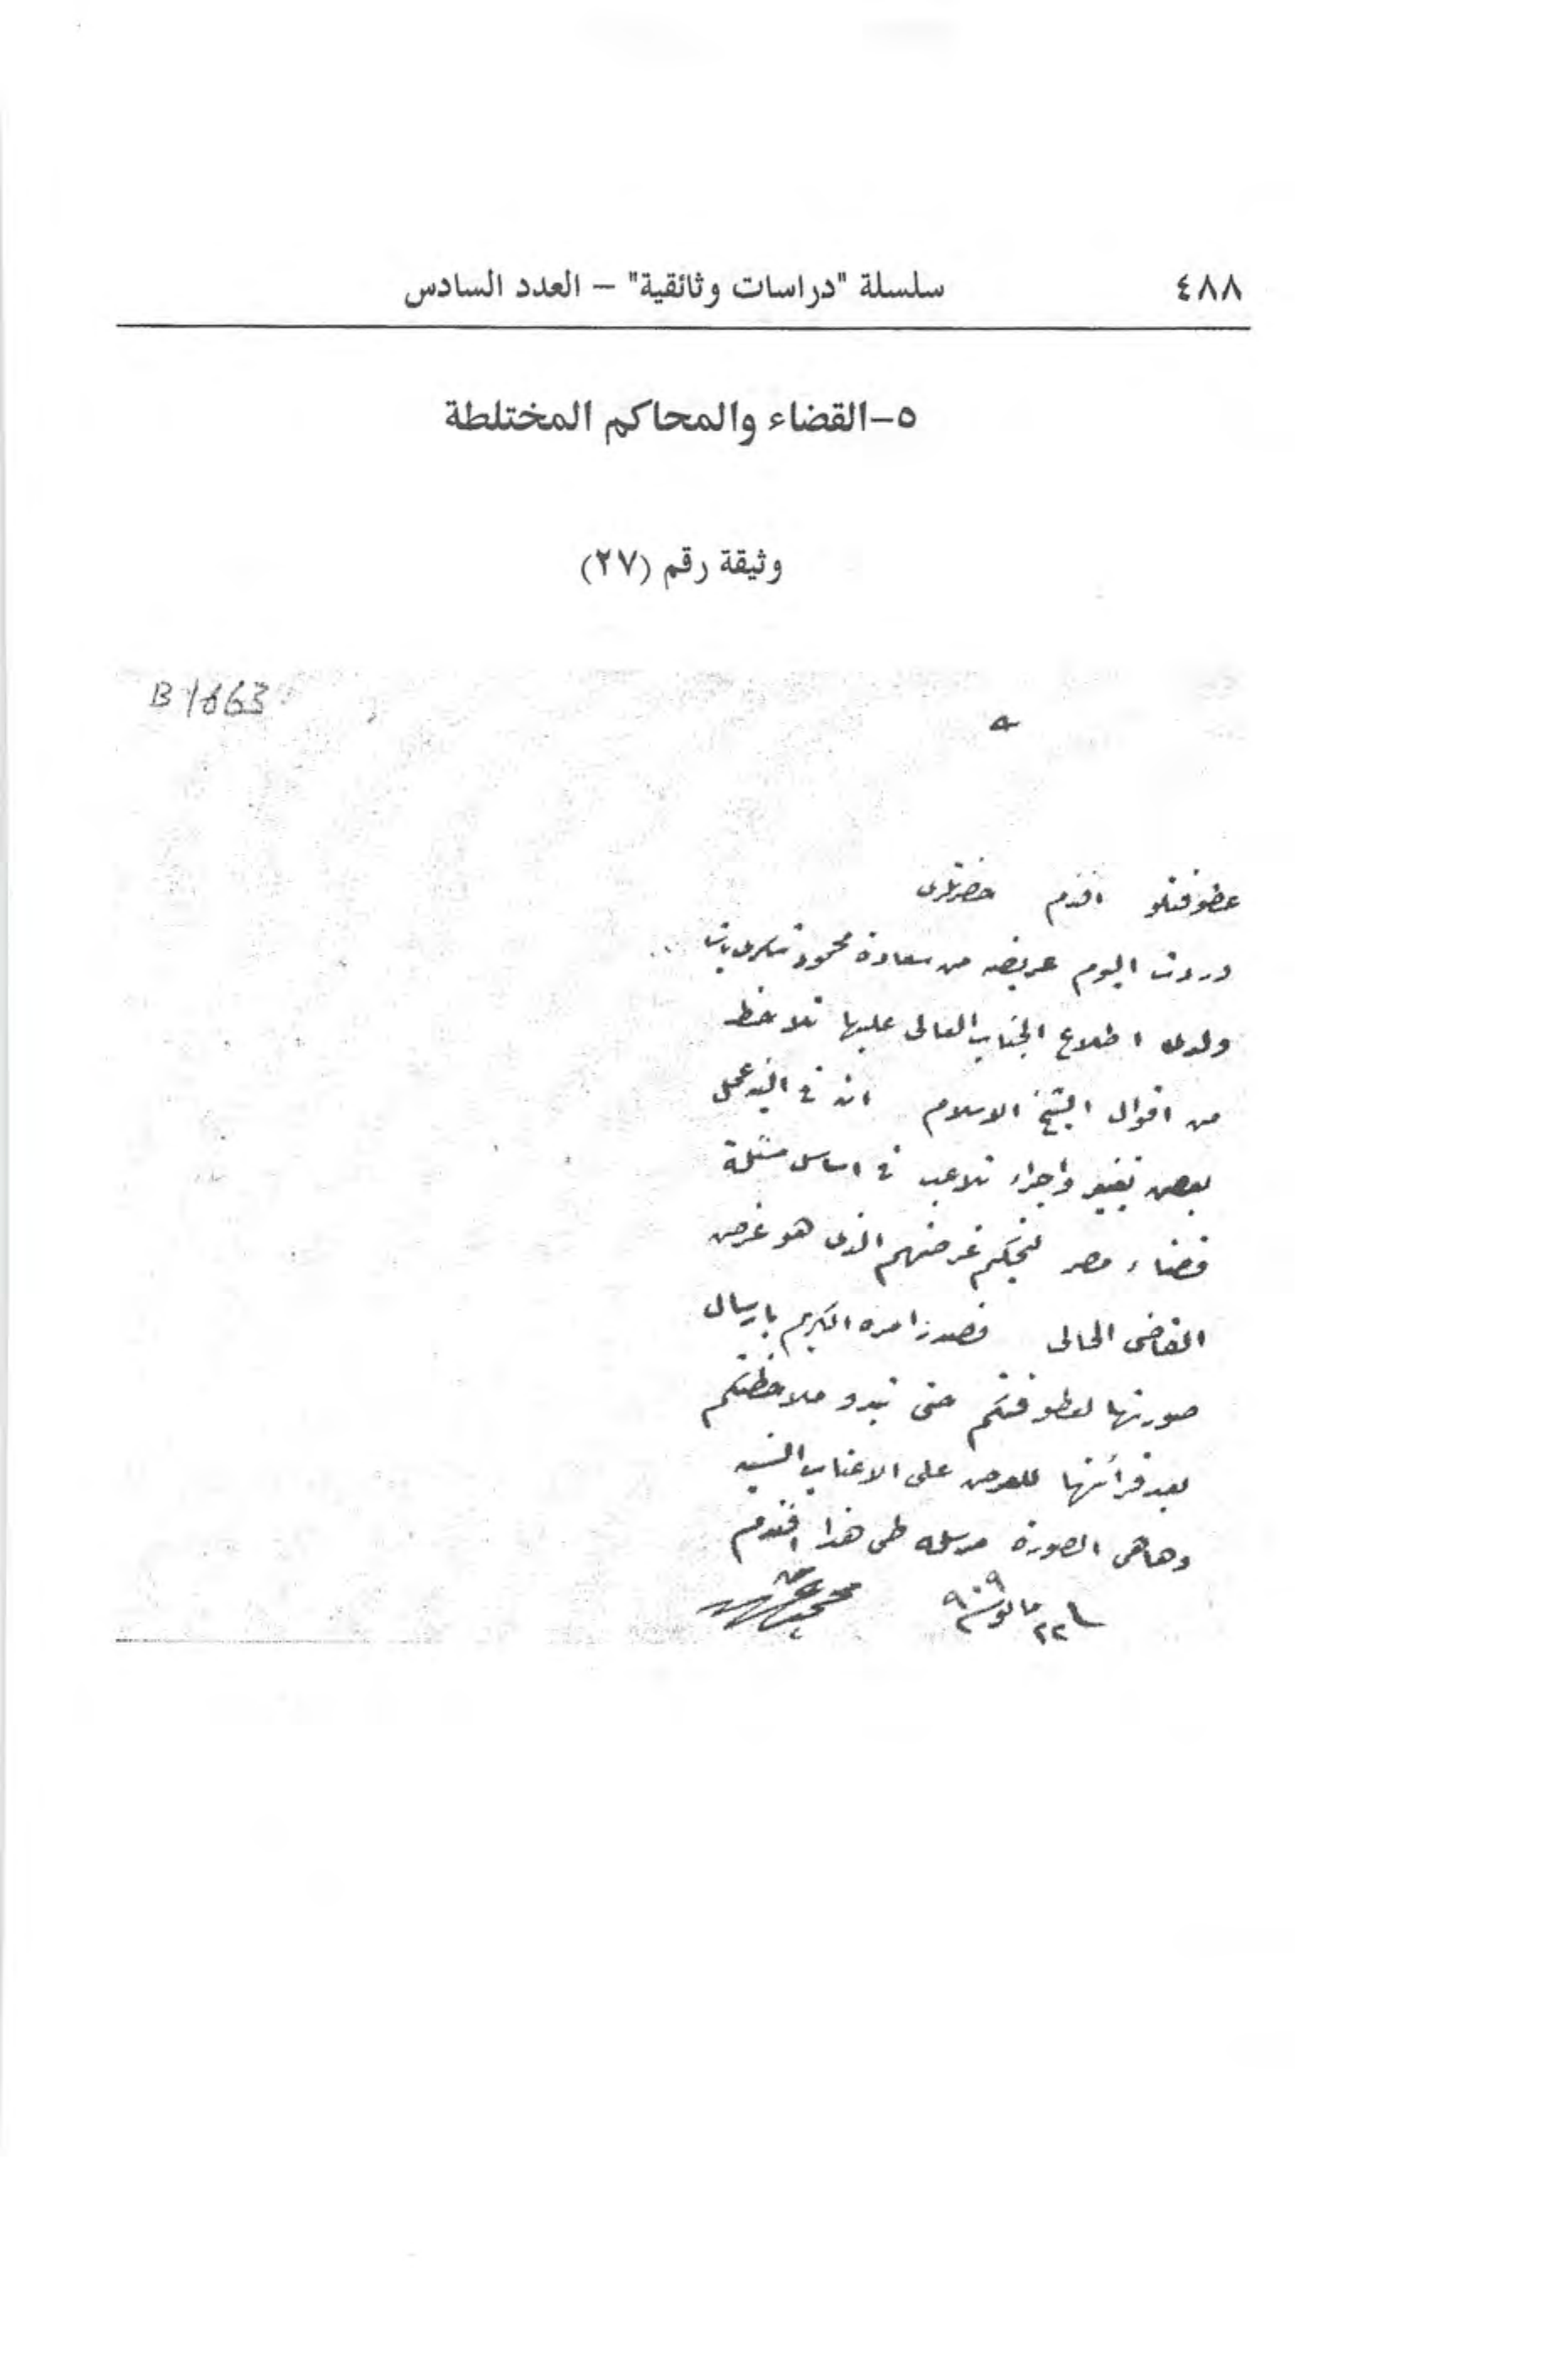 ٤٨٨
سلسلة "دراسات وثائقية" – العدد السادس
٥–القضاء والمحاكم المختلطة
وثيقة رقم (٢٧)
B 1863
عطوفتلو افندم حضرتلرى
وردت اليوم عريضه من سعادة محمود شكرى باشا
ولدى اطلاع الجناب العالى عليها تلاحظ
من اقوال الشيخ الاسلام ان فى النيه عمل
بعض تغيير واجراء تلاعب فى اساس مسئلة
قضاء مصر غرضهم الذى هو غرض
القاضى الحالى فصدر امره الكريم بارسال
صورتها لعطوفتكم حتى تبدو ملاحظتكم
بعد قرائتها للعرض على الاعتاب السنيه
وها هى الصورة مرسله طى هذا افندم
٢٢ مايو سنة ٩٠٩